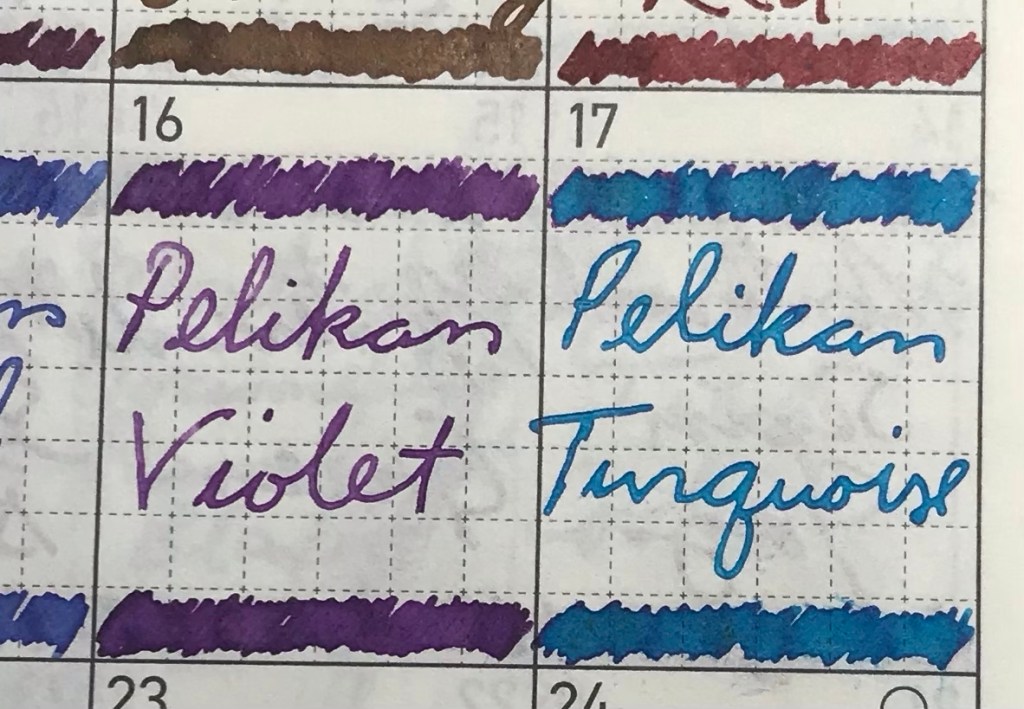 Red
16 17
Pelikan Pelikan
Violet Turquoise
23 24